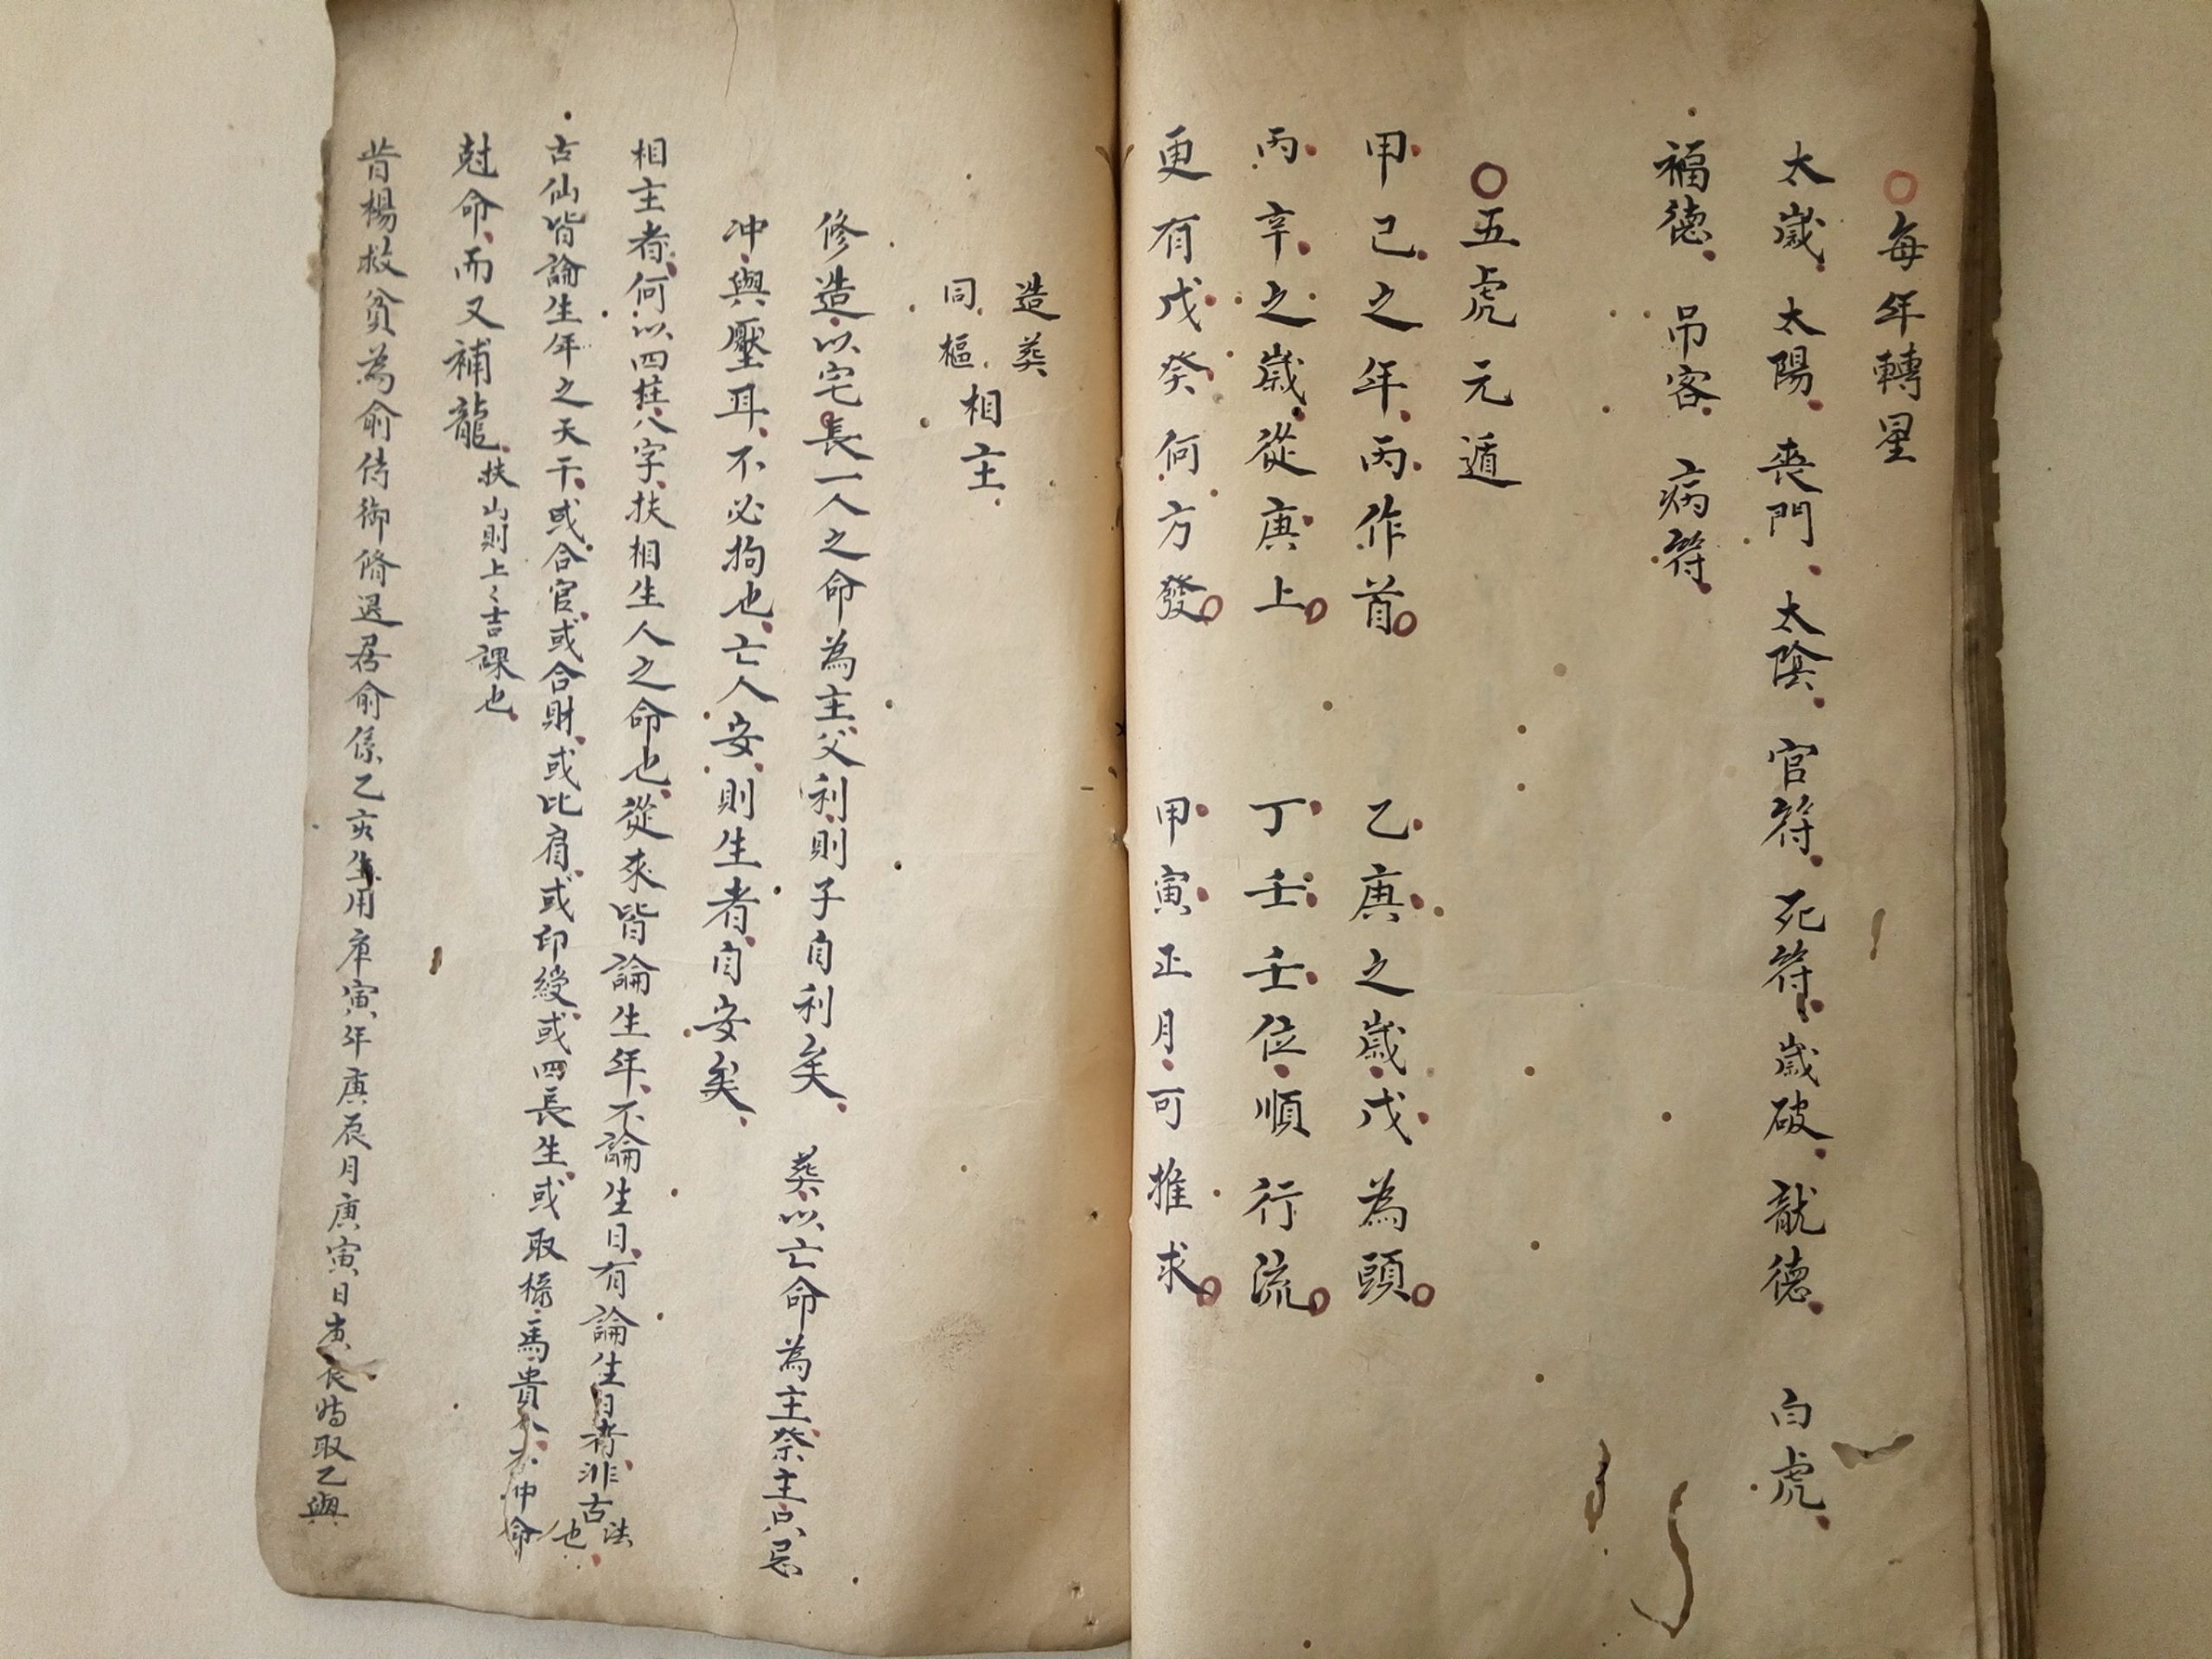 每年轉星
太歲 太陽 喪門 太陰 官符 死符 歲破 龍德 白虎
福德 吊客 病符
五虎元遁
甲己之年丙作首 乙庚之歲戊為頭
丙辛之歲從庚上 丁壬壬位順行流
更有戊癸何方發 甲寅正月可推求
造葬
同樞
相主
修造以宅長一人之命為主父利則子自利矣 葬以亡命為主祭主只忌
冲與壓耳不必拘也亡人安則生者自安矣
相主者何以四柱八字扶相生人之命也從來皆論生年不論生日有論生日者非古法也
古仙皆論生年之天干或合官或合財或比肩或印綬或四長生或取祿馬貴人不冲命
尅命而又補龍扶山則上々吉課也
昔楊救貧為俞侍御修退居俞係乙亥生用庚寅年庚辰月庚寅日庚辰時取乙與